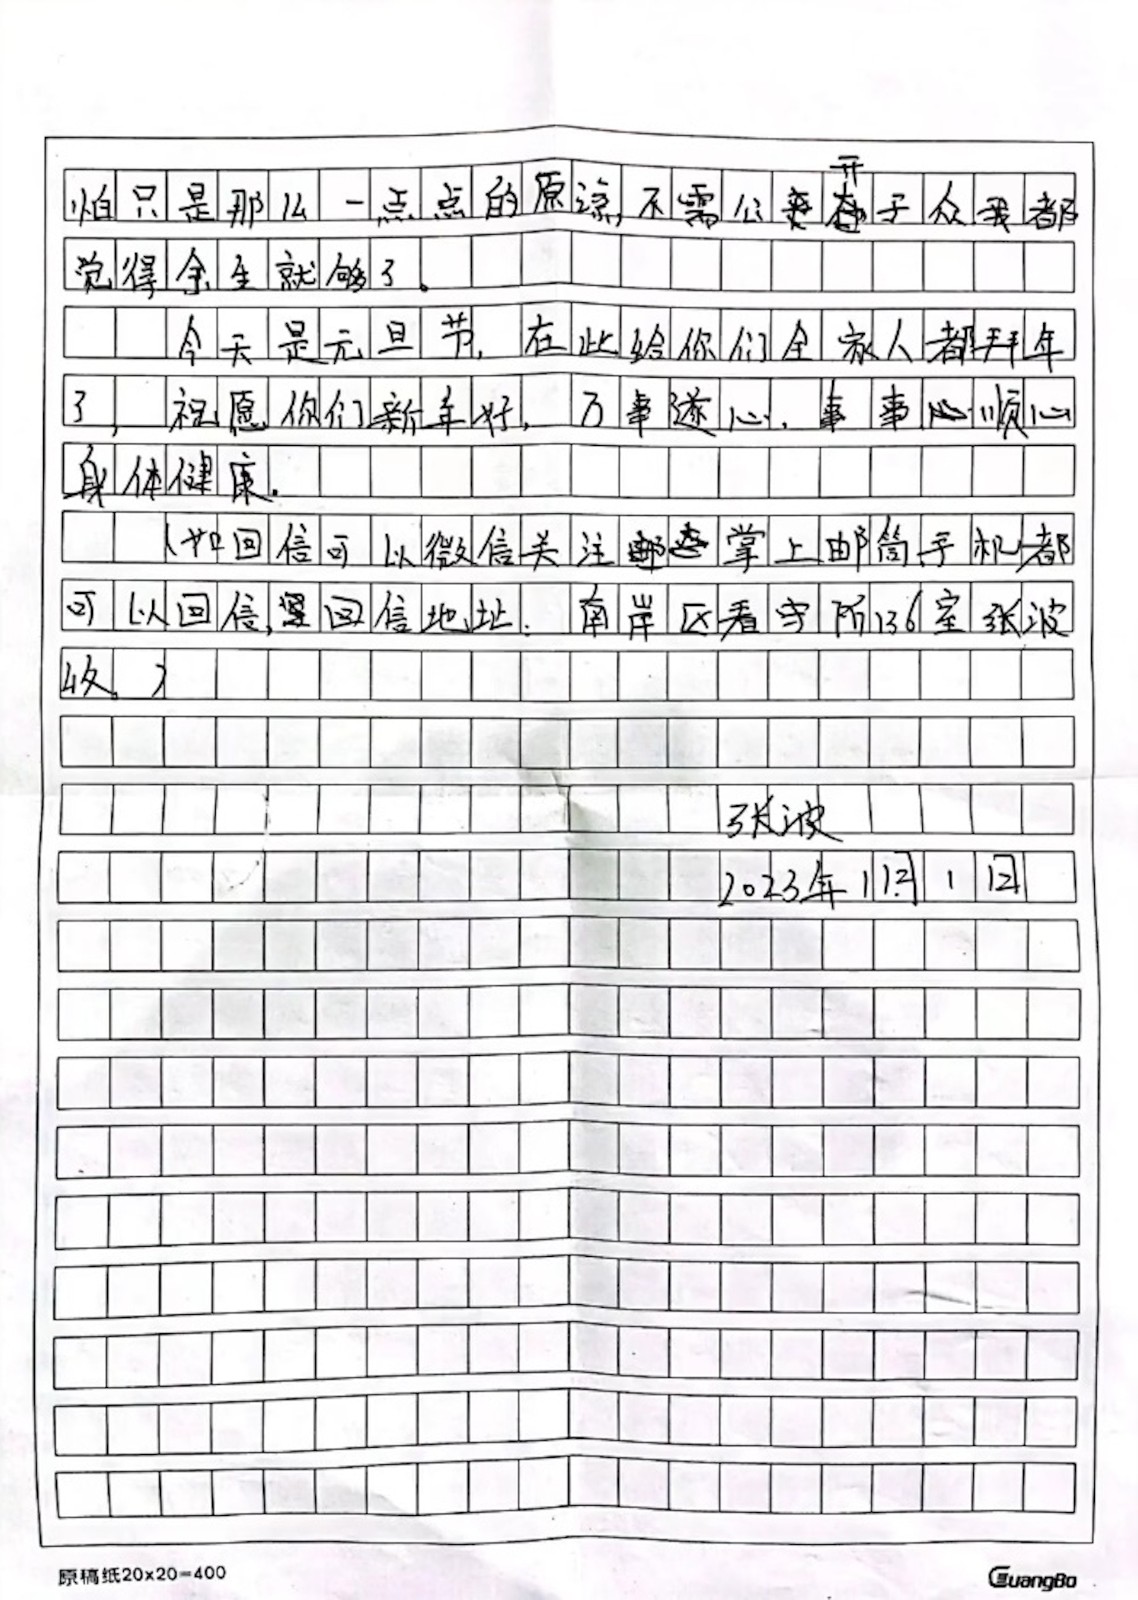 开
怕只是那么一点点的原谅,不需公于众我都
觉得余生就够了。
今天是元旦节,在此给你们全家人都拜年
了,祝愿你们新年好,万事遂心、事事心顺心
身体健康。
(如回信可以微信关注邮掌上邮筒手机都
可以回信,回信地址:南岸区看守所136室张波
收。)
张波
2023年1月1日
原稿纸20×20=400
GuangBo